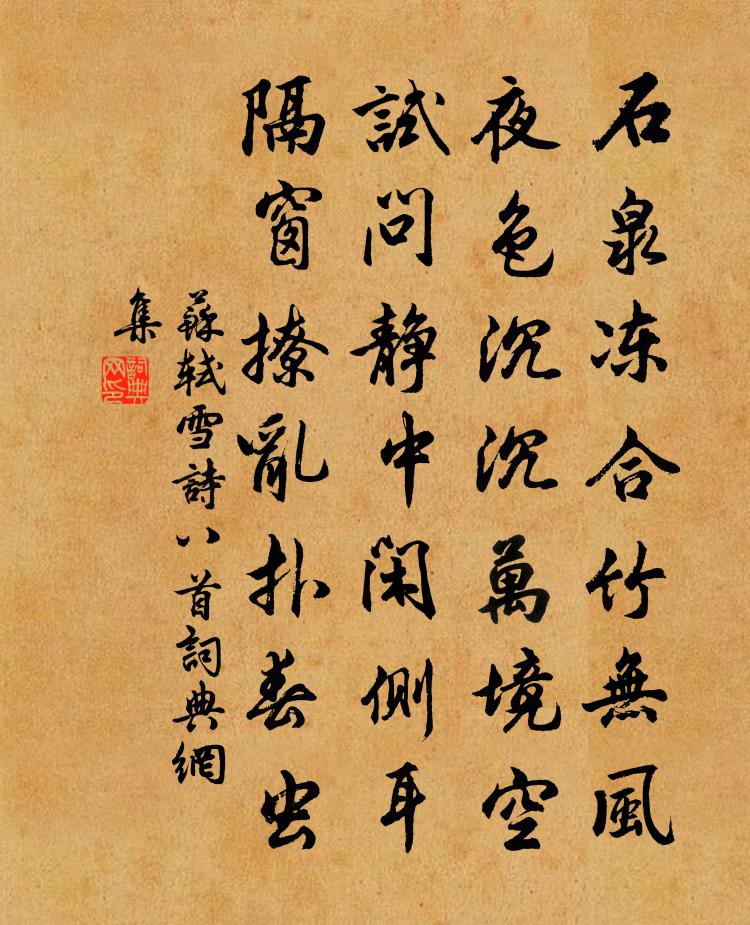 石泉冻合竹無風
夜色沉沉萬境空
試問静中閑側耳
隔窗撩亂扑春虫
蘇軾雪詩八首詞典網
集
詞典
网印